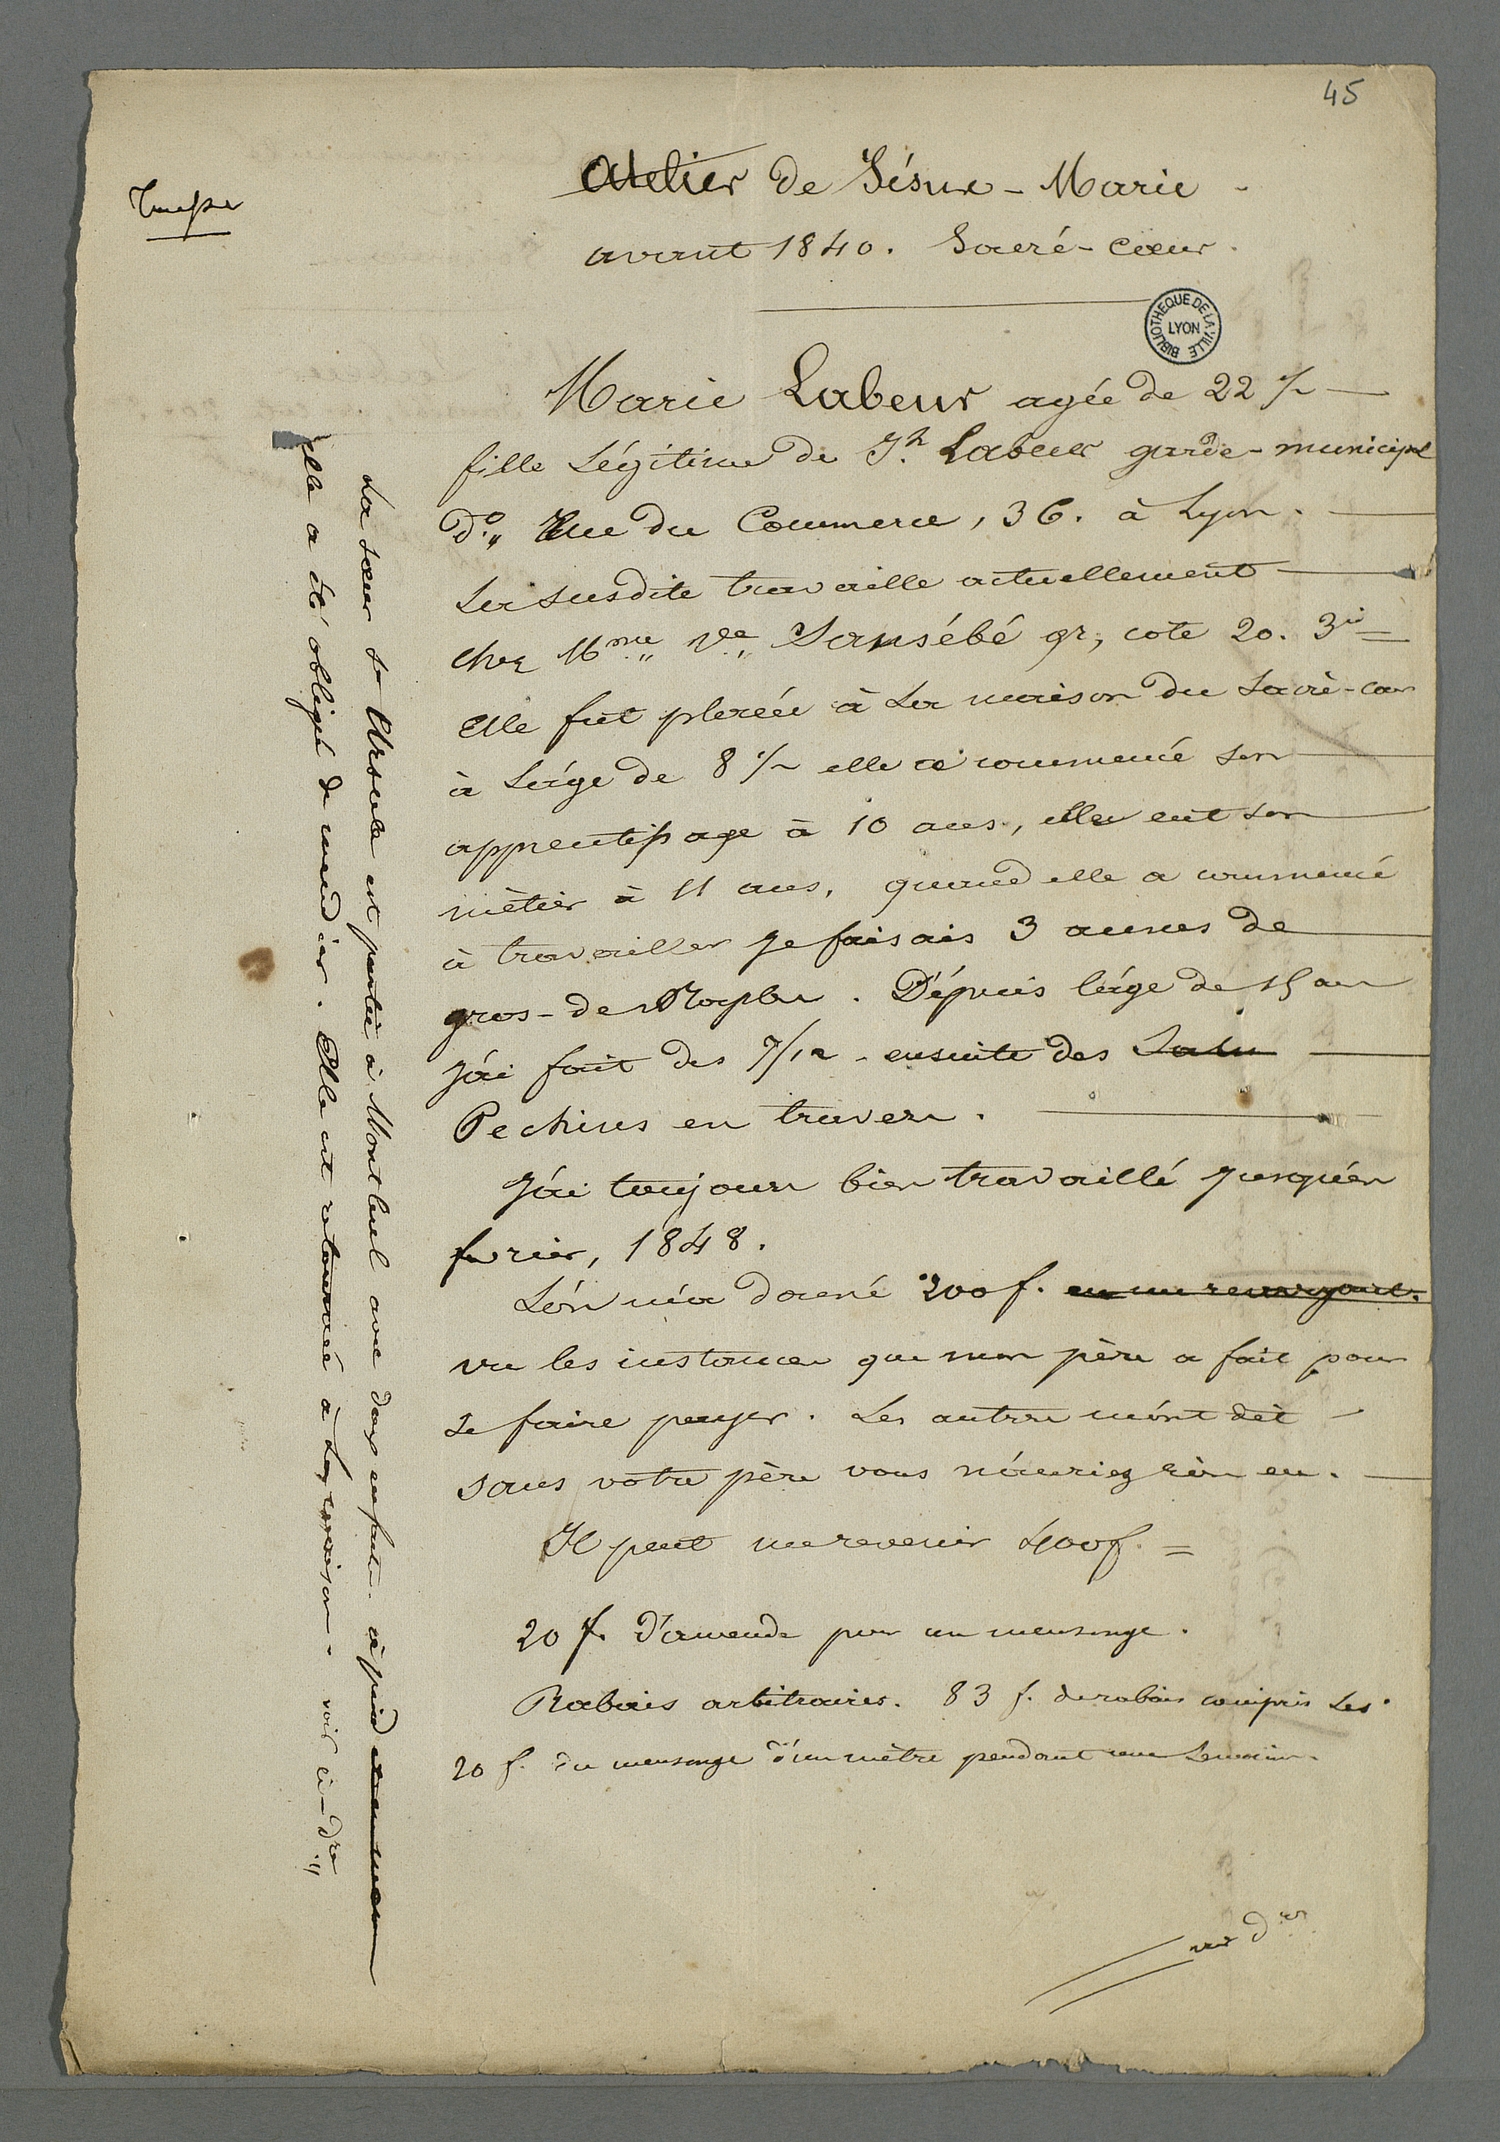 45
Atelier de Jésus-Marie -
avant 1840. Sacré-Cœur.
BIBLIOTHEQUE DE LA VILLE LYON
Marie Labeur agée de 22
fille Légitime de Jh Labeur garde-municipal
do,, Rue du Commerce, 36. à Lyon.
La susdite travaille actuellement
chez Mme,, Ve,, Sansébé gr, cote 20. 3i=
Elle fut placée à La maison du Sacré-
à Láge de 8 elle a commencé son
apprentissage à 10 ans, elle eut son
mètier à 11 ans, quand elle a commencé
à travailler je faisais 3 aunes de
gros-de Naples. Dépuis láge de 15 ans
Jái fait des 7/12 - ensuite des
Pechines en travers.
Jái toujours bien travaillé Jusquén
fevrier, 1848.
Lón má donné 200 f.
vu les instances que mon père a fait pour
se faire payer. Les autres mónt dit
sans votre père vous náuriez rien eu.
Il peut me revenir 400 f. =
20 f. d'amende pour un mensonge.
Rabais arbitraires. 83 f. de rabais compris Les
20 f. du mensonge d'un mètre pendant une Semaine.
La sœur Ste Ursule est partie à Montluel avec douze enfants à pied
elle a été obligé de mendier. Elle est retournée à La maison. voir ci-